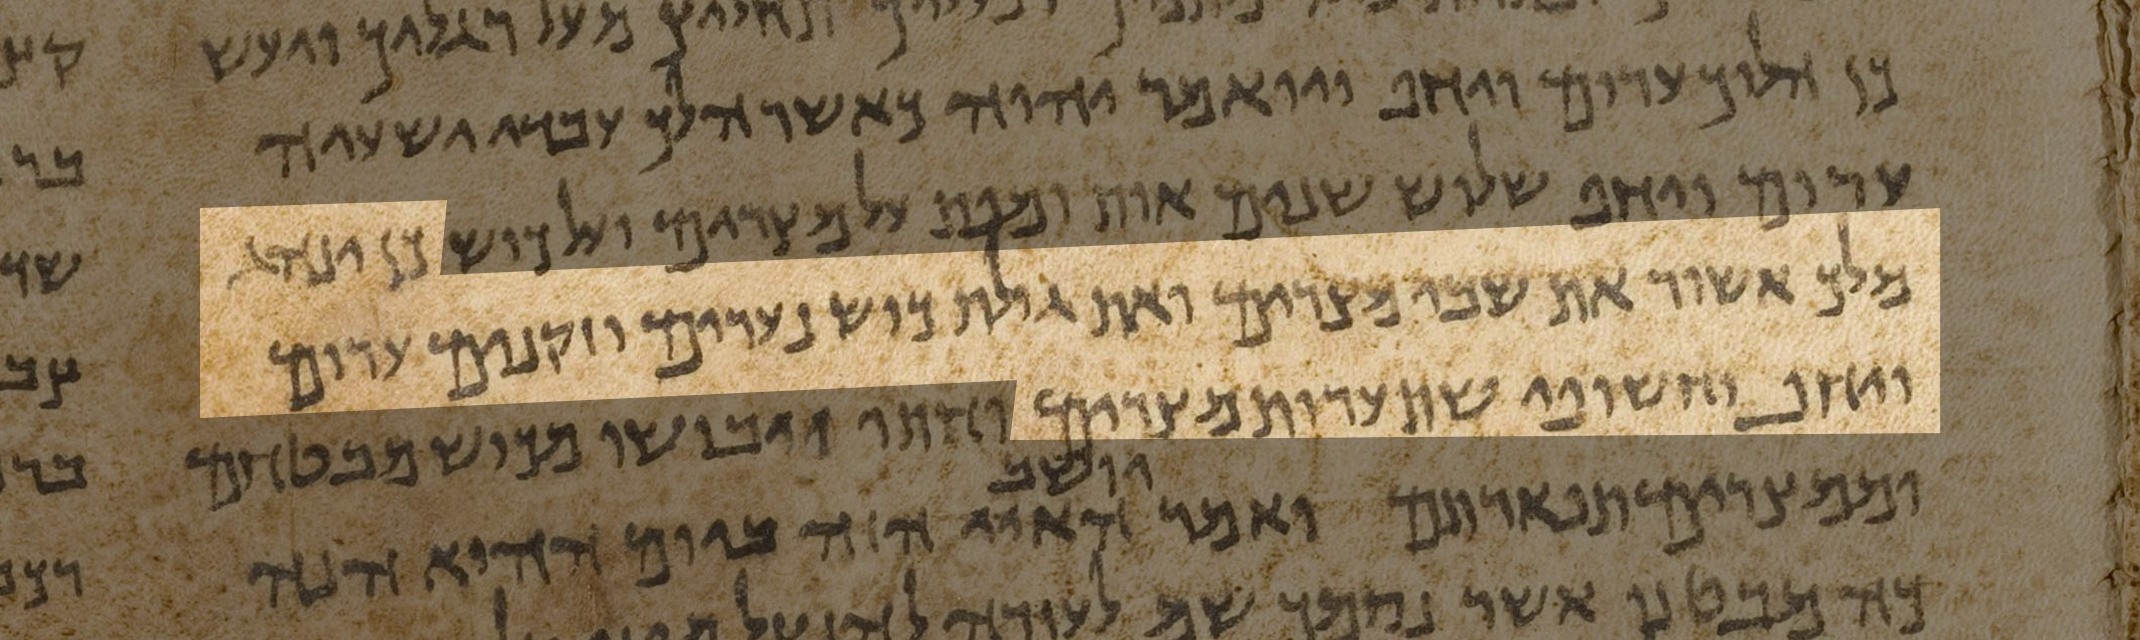 תחלוץ מעל רגליך ויעש
כן הלוך ערום ויחף ויואמר יהוה כאשר הלך עבדי ישעיה
ערום ויחף שלוש שנים אות ומפת על מצרים ועל כוש כן ינהג
מלך אשור את שבי מצרים ואת גולת כוש נערים וזקנים ערום
ויחף וחשופי שת ערות מצרים וחתו ויבושו מכוש מבטחם
יושב
וממצרים תפארתם ואמר האי הזה ביום ההוא הנה
כה מבטנו אשר נסמך שם לעזרה